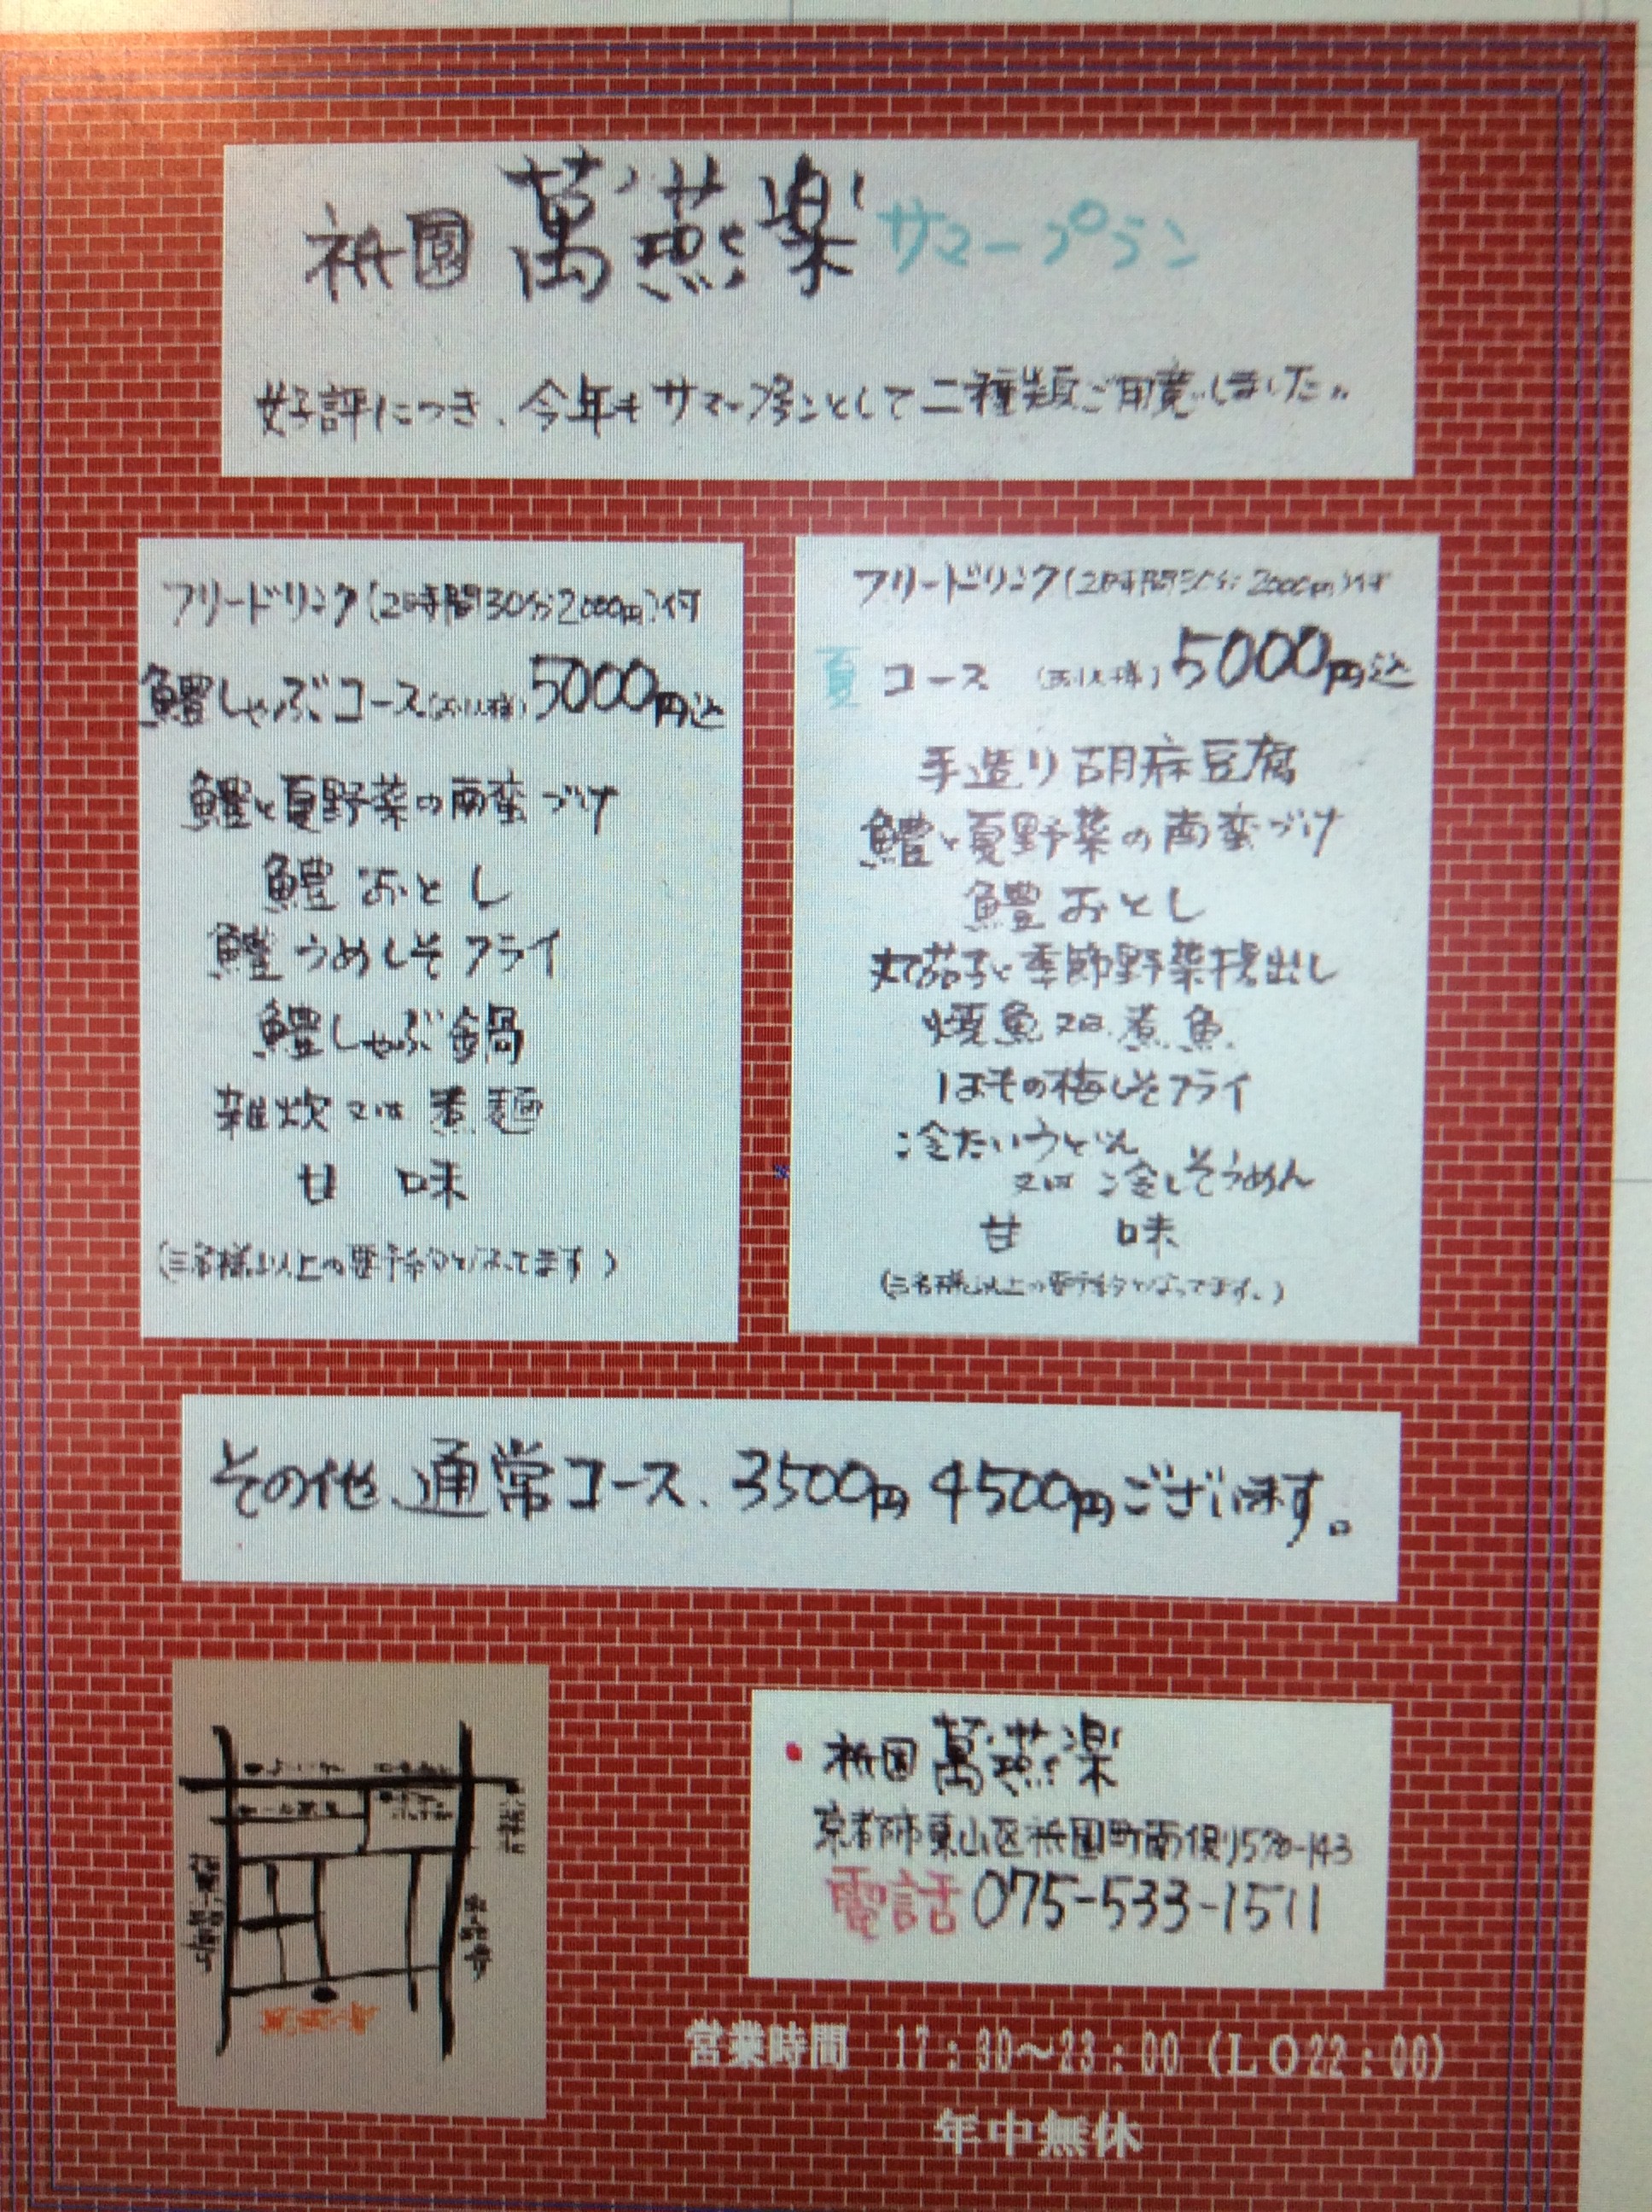 祇園 萬燕楽 サマープラン
好評につき、今年もサマープランとして二種類ご用意しました。
フリードリンク(2時間30分2000円)付
鱧しゃぶコース(お1人様)5000円込
鱧と夏野菜の南蛮づけ
鱧おとし
鱧うめしそフライ
鱧しゃぶ鍋
雑炊又は煮麺
甘 味
(三名様以上の要予約となってます)
フリードリンク(2時間30分2000円)付
夏コース (お1人様)5000円込
手造り胡麻豆腐
鱧と夏野菜の南蛮づけ
鱧おとし
丸茄子と季節野菜揚出し
焼魚又は煮魚
はもの梅しそフライ
冷たいうどん
又は 冷しそうめん
甘 味
(三名様以上の要予約となってます。)
その他、通常コース、3500円 4500円ございます。
・祇園 萬燕楽
京都市東山区祇園町南側570-143
電話 075-533-1511
営業時間 17:30～23:00 (LO22:00)
年中無休